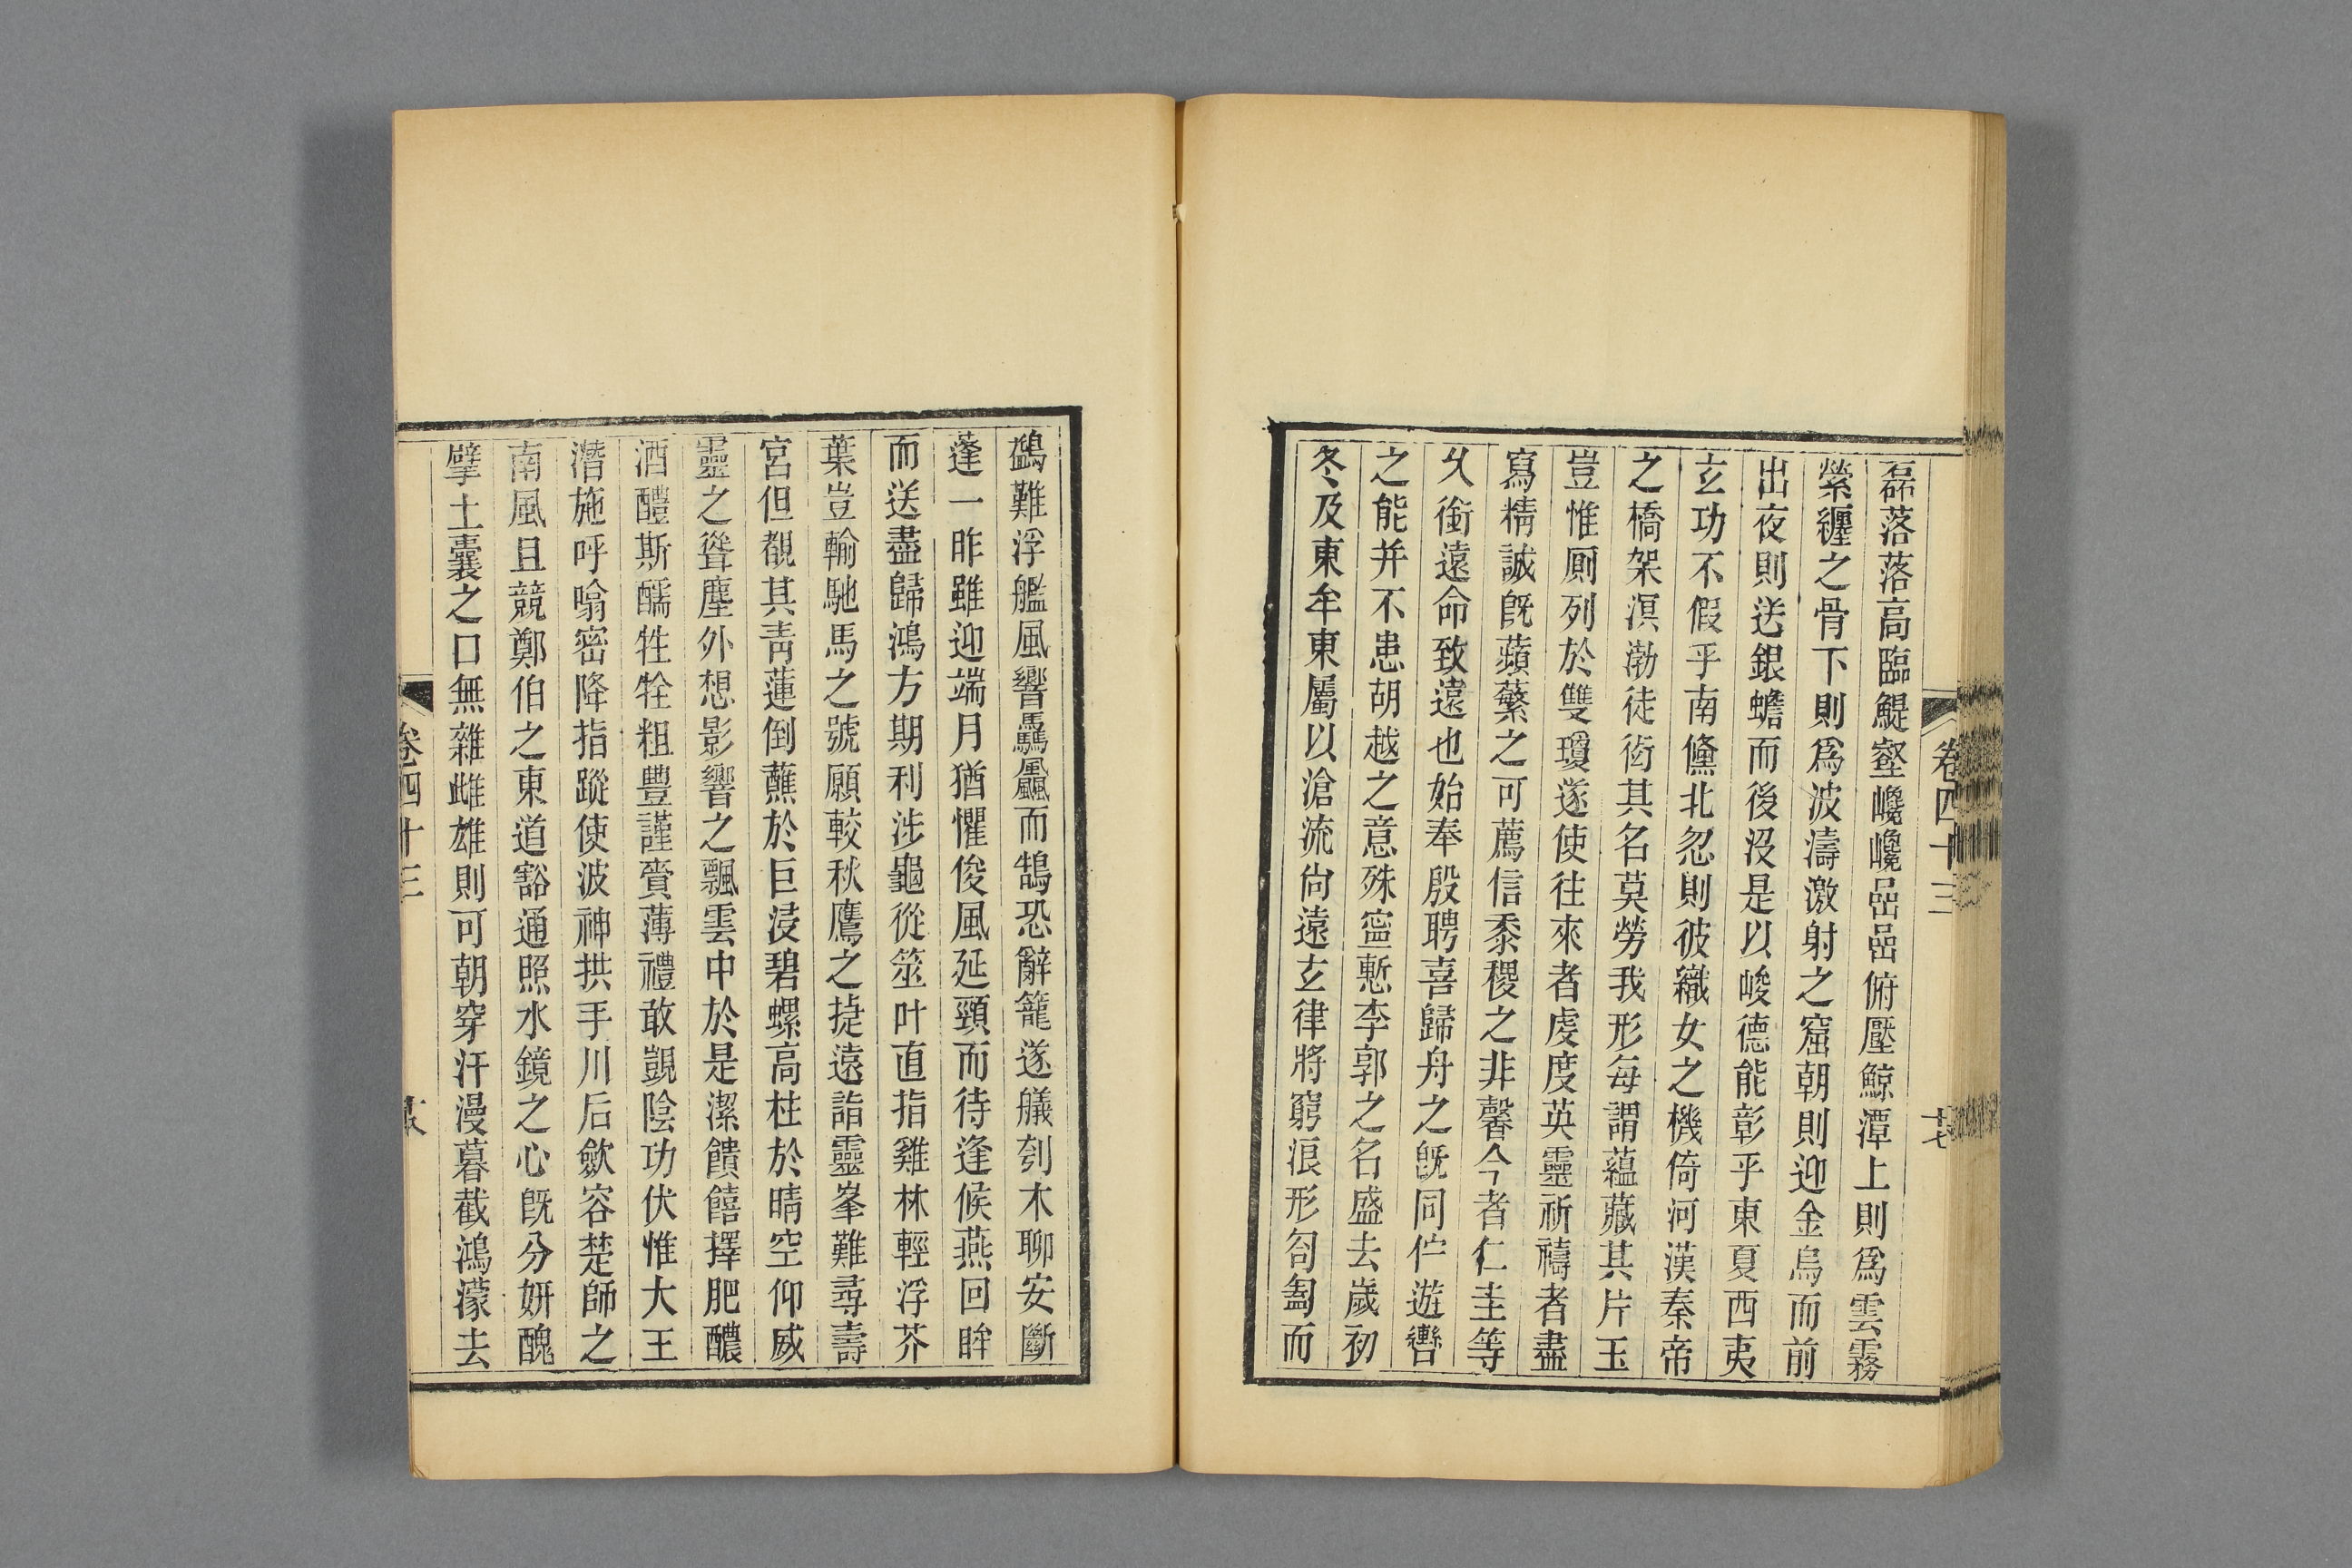 磊落落高臨鯷壑巉巉嵒嵒俯壓鯨潭上則爲雲霧
縈纒之骨下則爲波濤激射之窟朝則迎金烏而前
出夜則送銀蟾而後沒是以峻德能彰乎東夏西夷
玄功不假乎南儵北忽則彼織女之機倚河漢秦帝
之橋架溟渤徒衒其名莫勞我形每謂蘊藏其片玉
豈惟厠列於雙瓊遂使往來者虔度英靈祈禱者盡
寫精誠旣蘋蘩之可薦信黍稷之非馨今者仁圭等
久銜遠命致遠也始奉殷聘喜歸舟之旣同伫遊轡
之能幷不患胡越之意殊寧慙李郭之名盛去歲初
冬及東牟東屬以滄流尙遠玄律將窮浪形匌匒而
卷四十三
十七
鷁難浮艦風響驫䬟而鵠恐辭籠遂艤刳木聊安斷
蓬一昨雖迎端月猶懼俊風延頸而待逢候燕回眸
而送盡歸鴻方期利涉龜從筮叶直指雞林輕浮芥
葉豈輸馳馬之號願較秋鷹之捷遠詣靈峯難尋壽
宮但覩其靑蓮倒蘸於巨浸碧螺高柱於晴空仰威
靈之聳塵外想影響之飄雲中於是潔饋饎擇肥醲
酒醴斯醹牲牷粗豐謹賷薄禮敢覬陰功伏惟大王
潛施呼噏密降指蹤使波神拱手川后歛容楚師之
南風且競鄭伯之東道豁通照水鏡之心旣分妍醜
擘土囊之口無雜雌雄則可朝穿汗漫暮截鴻濛去
卷四十三